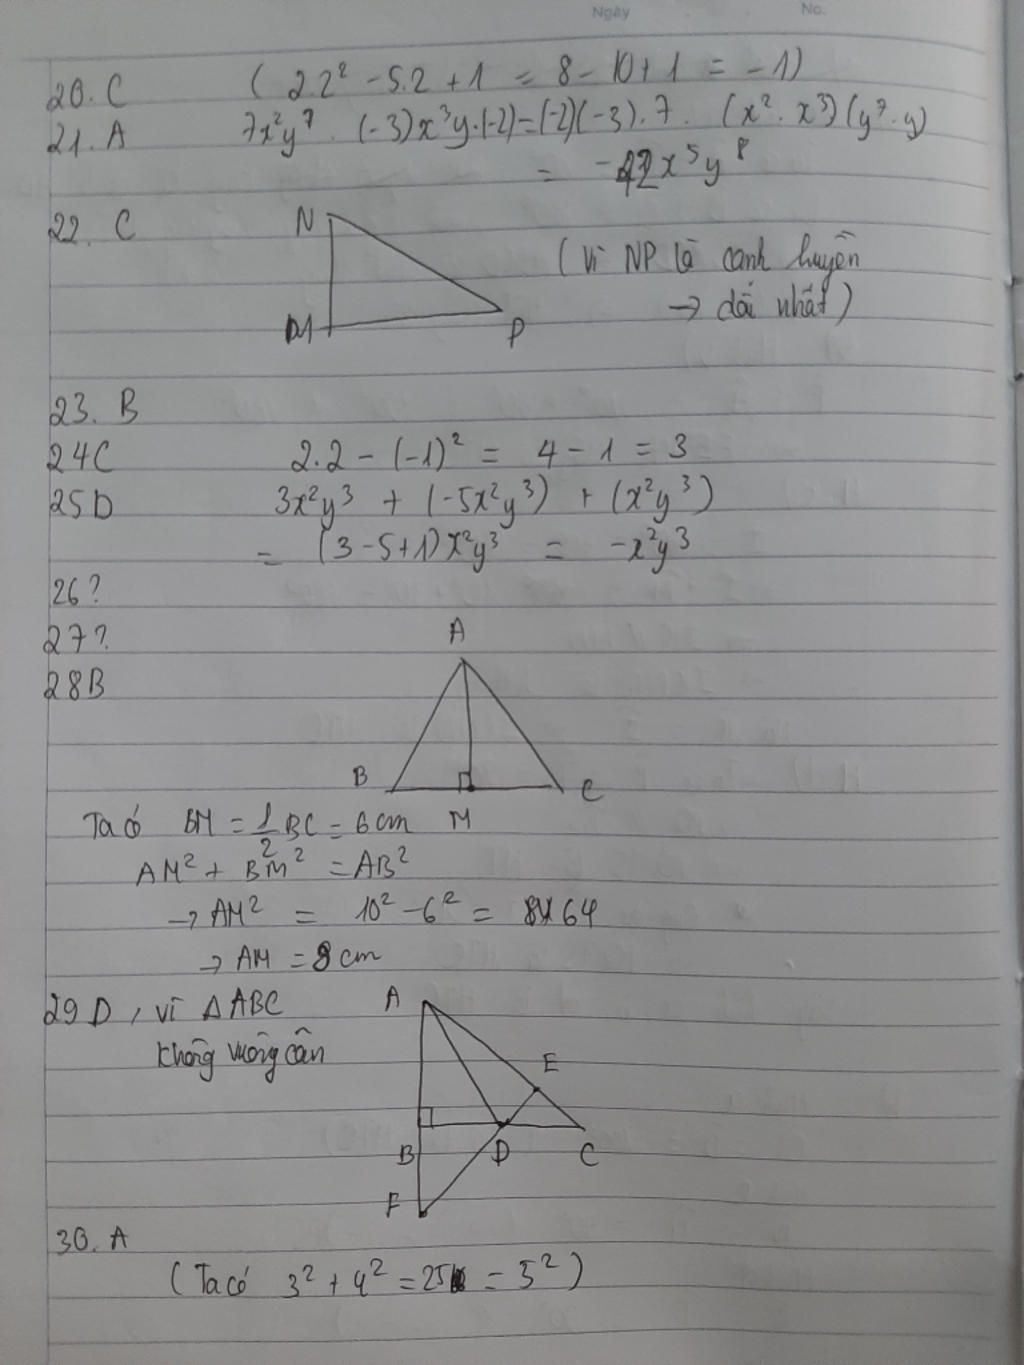 Ngày No.
20. C ( 2.2² - 5.2 + 1 = 8 - 10 + 1 = -1)
21. A 7x²y⁷ . (-3)x³y.(-2) = (-2)(-3).7. (x². x³)(y⁷. y)
= -42x⁵y⁸
22. C N (Vì NP là canh huyền
→ dài nhất)
M P
23. B
24C 2.2 - (-1)² = 4 - 1 = 3
25D 3x²y³ + (-5x²y³) + (x²y³)
= (3-5+1)x²y³ = -x²y³
26?
27?
A
28B
B C
Ta có BM = 1/2 BC = 6cm M
AM² + BM² = AB²
→ AM² = 10² - 6² = 64
→ AM = 8cm
29D, vì ΔABC A
không vuông cân E
B D C
F
30. A
(Ta có 3² + 4² = 25 = 5²)